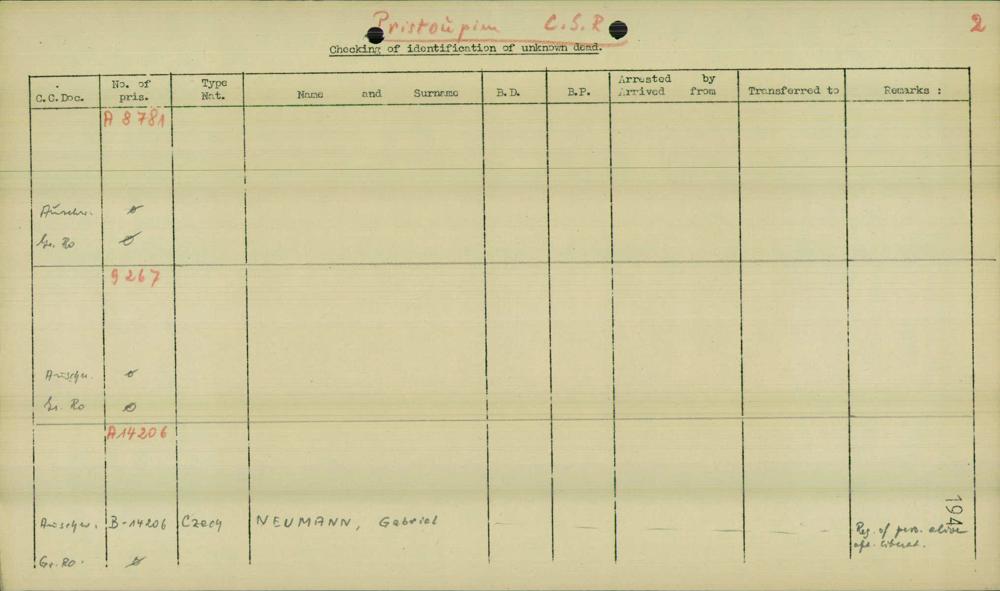 Pristoupim C.S.R 2
Checking of identification of unknown dead.
C.C.Doc. No. of pris. Type Nat. Name and Surname B.D. B.P. Arrested by Arrived from Transferred to Remarks :
A 8781
Auschw. ø
Gr. Ro ø
9267
Auschw. ø
Gr. Ro ø
A14206
Auschw. B-14206 Czech NEUMANN, Gabriel - - - - - Reg. of pers. alive
aft. liberat.
194
Gr. Ro. ø